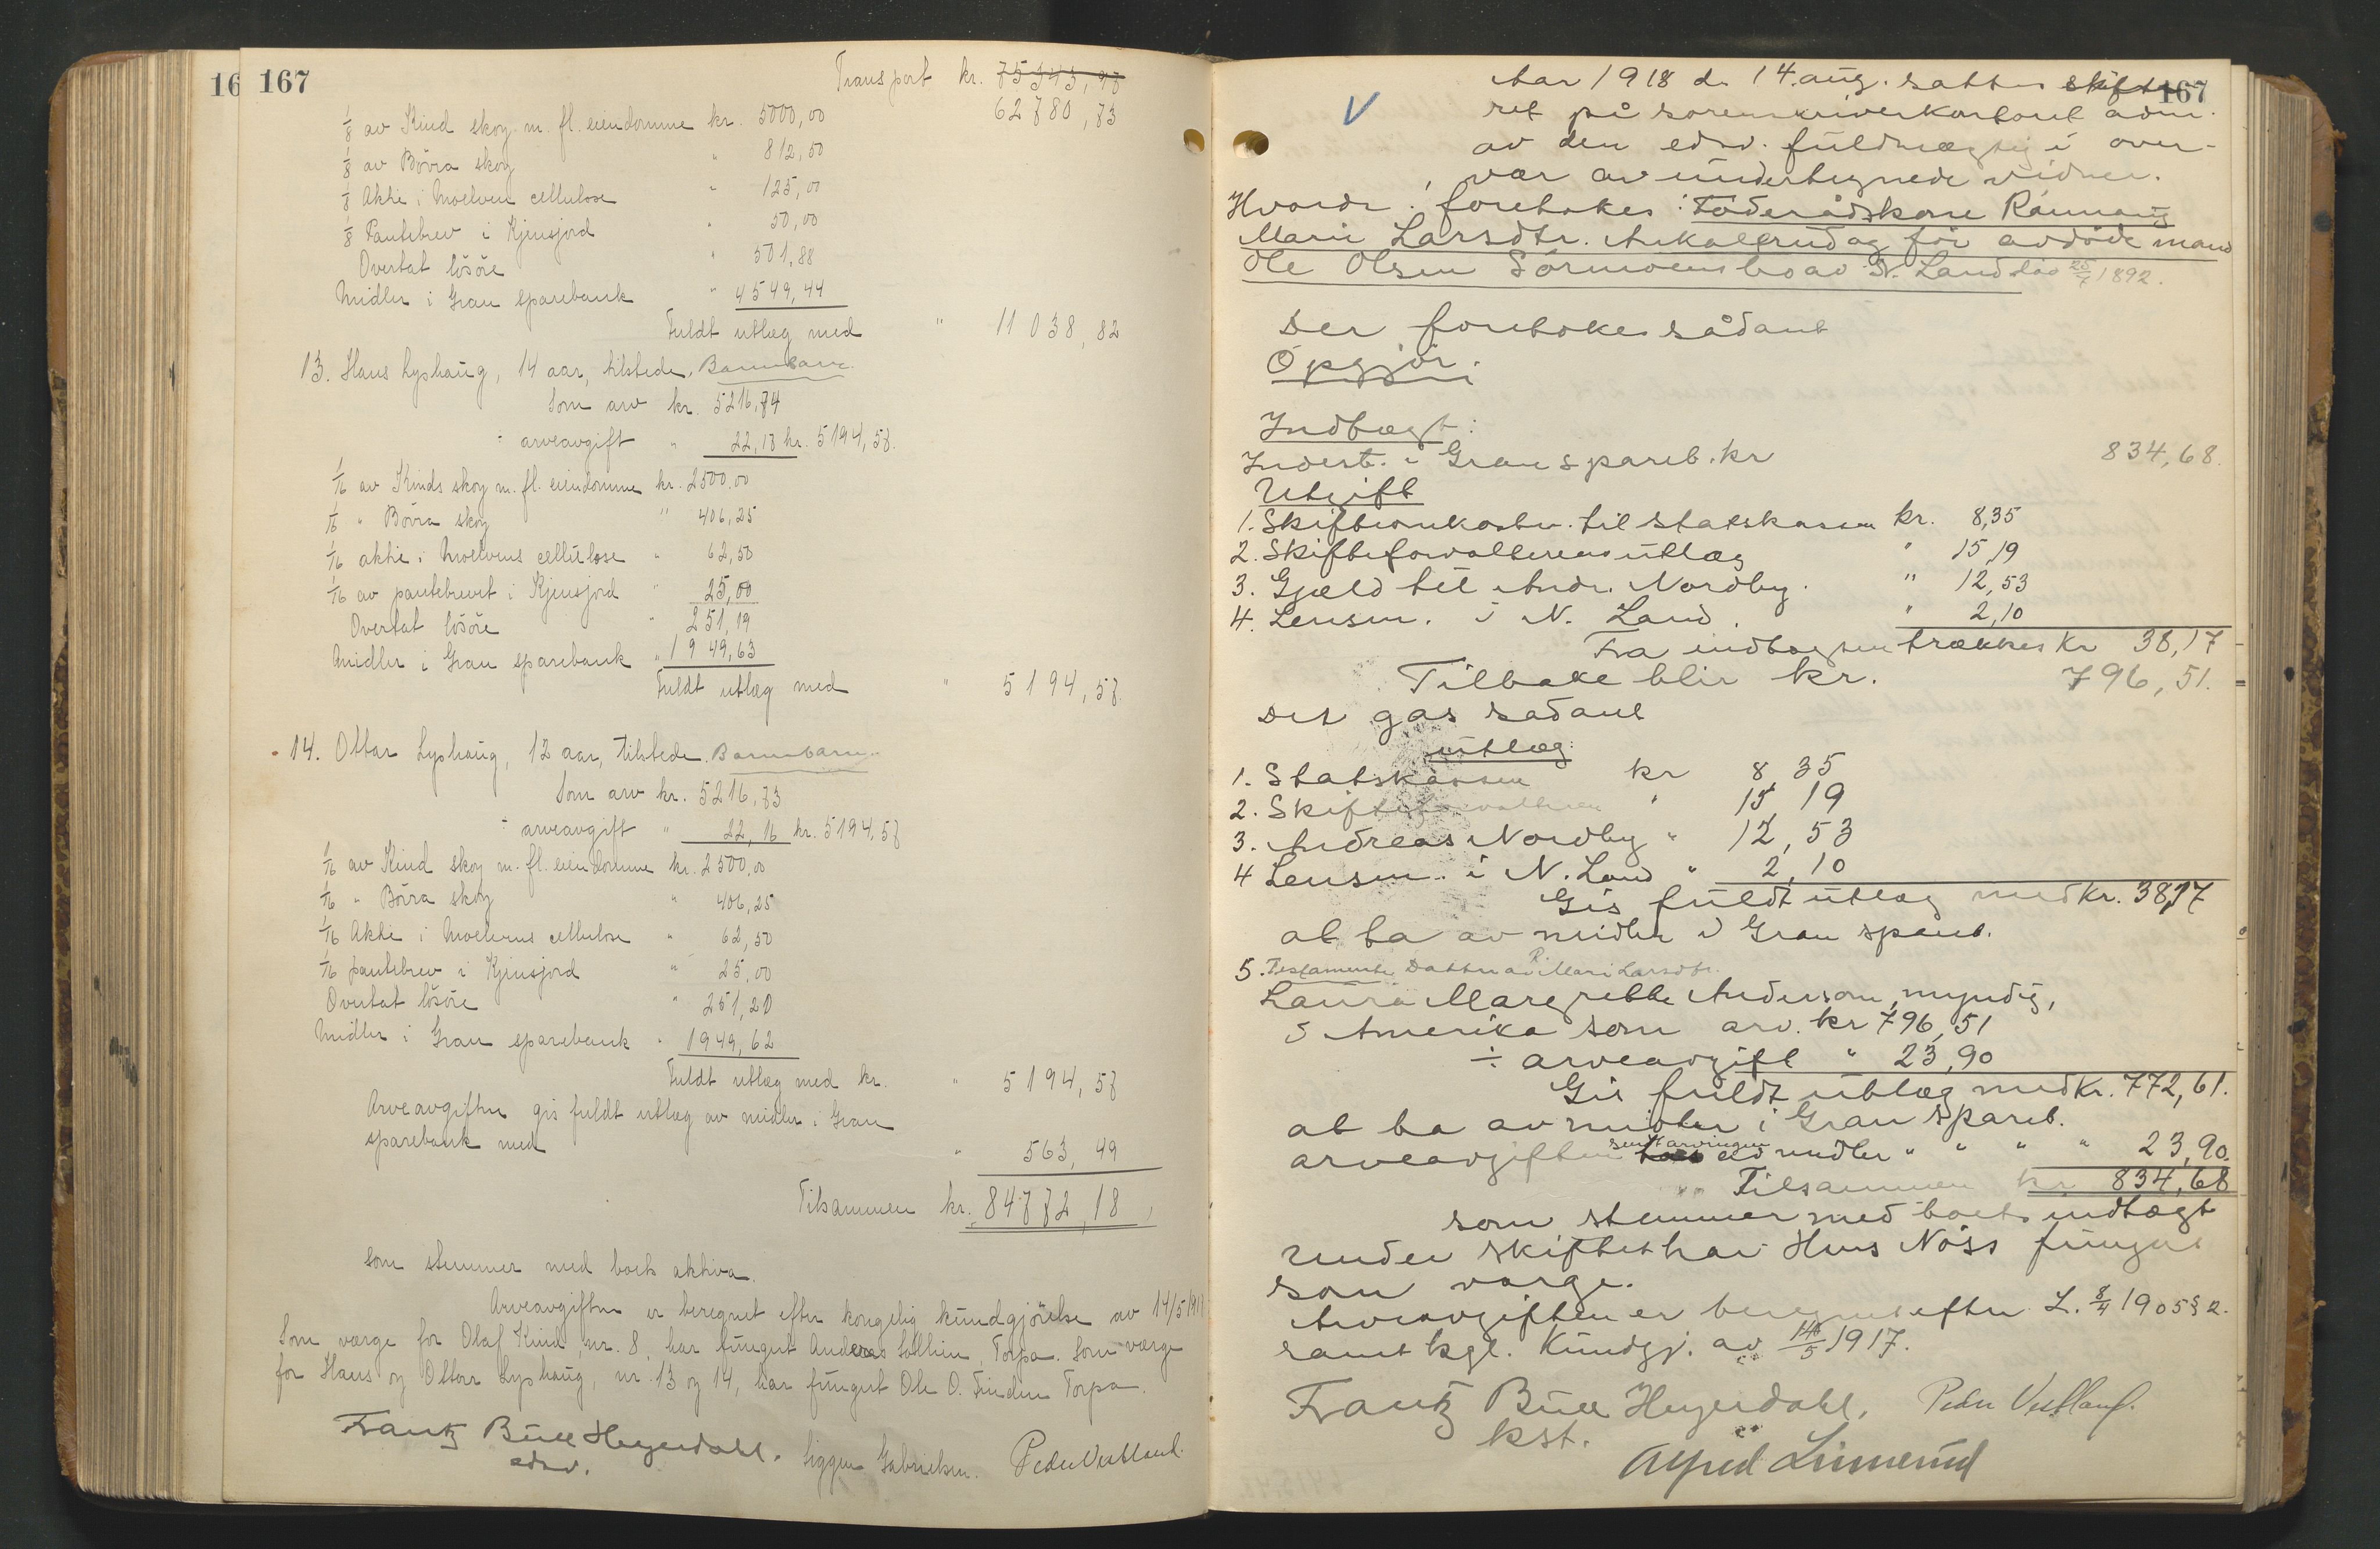 16
167
Transport kr. 75343,98
62780,83
1/8 av Kind skog m. fl. eiendomme kr. 5000,00
1/8 av Bövra skog " 812,50
1/8 Aktie i Moelven cellulose " 125,00
1/8 Pantebrev i Kjensjord " 50,00
Overtat lösöre " 501,88
Midler i Gran sparebank " 4549,44
Fuldt utlæg med " 11038,82
13. Hans Lyshaug, 14 aar, tilstede. Barnebarn.
Som arv kr. 5216,74
÷ arveavgift " 22,18 kr. 5194,57.
1/16 av Kinds skog m. fl. eiendomme kr. 2500,00
1/16 " Bövra skog " 406,25
1/16 aktie i Moelvens cellulose " 62,50
1/16 av pantebrevet i Kjensjord " 25,00
Overtat lösöre " 251,19
Midler i Gran sparebank " 1949,63
Fuldt utlæg med " 5194,57.
14. Ottar Lyshaug, 12 aar, tilstede. Barnebarn.
Som arv kr. 5216,73
÷ arveavgift " 22,16 kr. 5194,57
1/16 av Kind skog m. fl. eiendomme kr. 2500,00
1/16 " Bövra skog " 406,25
1/16 Aktie i Moelvens cellulose " 62,50
1/16 pantebrev i Kjensjord " 25,00
Overtat lösöre " 251,20
Midler i Gran sparebank " 1949,62
Fuldt utlæg med kr. " 5194,57
Arveavgiften gis fuldt utlæg av midler i Gran
sparebank med " 563,49
Tilsammen kr. 84772,18
som stemmer med boets aktiva.
Arveavgiften er beregnet efter kongelig kundgjörelse av 14/5 1917
Som værge for Olaf Kind, nr. 8, har fungert Andreas Sollien, Torpa. Som værge
for Hans og Ottar Lyshaug, nr. 13 og 14, har fungert Ole O. Finden Torpa.
Frantz Bull Heyerdahl. Siggen Gabrielsen. Peder Vestland.
edsv.
167
V
Aar 1918 d. 14. aug. sattes skifte-
ret på sorenskriverkontoret adm.
av den edsv. fuldmægtig i over-
vær av undertegnede vidner.
Hvorda: foretokes: Föderådskone Rannaug
Marie Larsdtr. Ankallrud og för avdöde mand
Ole Olsen Sörmoens bo av N. Land död 25/7 1892.
Der foretokes sådant
Opgjör.
Indtægt:
Indest. i Gran spareb. kr 834,68.
Utgift
1. Skifteomkostn. til statskassen kr. 8,35
2. Skifteforvalterens utlæg " 15,19
3. Gjæld til Andr. Nordby. " 12,53
4. Lensm. i N. Land. " 2,10
Fra indtægten trækkes kr 38,17
Tilbake blir kr. 796,51.
Det gås sådant
utlæg:
1. Statskassen kr 8,35
2. Skifteforvalteren " 15,19
3. Andreas Nordby " 12,53
4 Lensm. i N. Land " 2,10
Gis fuldt utlæg med kr. 38,17
at ta av midler i Gran spareb.
5. Testamente Datter av R. Mari Larsdtr.
Laura Margrethe Anderson, myndig,
i Amerika som arv. kr 796,51
÷ arveavgift " 23,90
Gis fuldt utlæg med kr. 772,61.
at ta av midler i Gran spareb.
arveavgiften av midler " " " " 23,90.
Tilsammen kr 834,68
som stemmer med boets indtægt
Under skiftet har Hans Nöss fungert
som værge.
Arveavgiften er beregnet efter L. 8/4 1905 § 2.
samt kgl. Kundgj. av 14/5 1917.
Frantz Bull Heyerdahl. Peder Vestland.
kst.
Alfred Linnerud